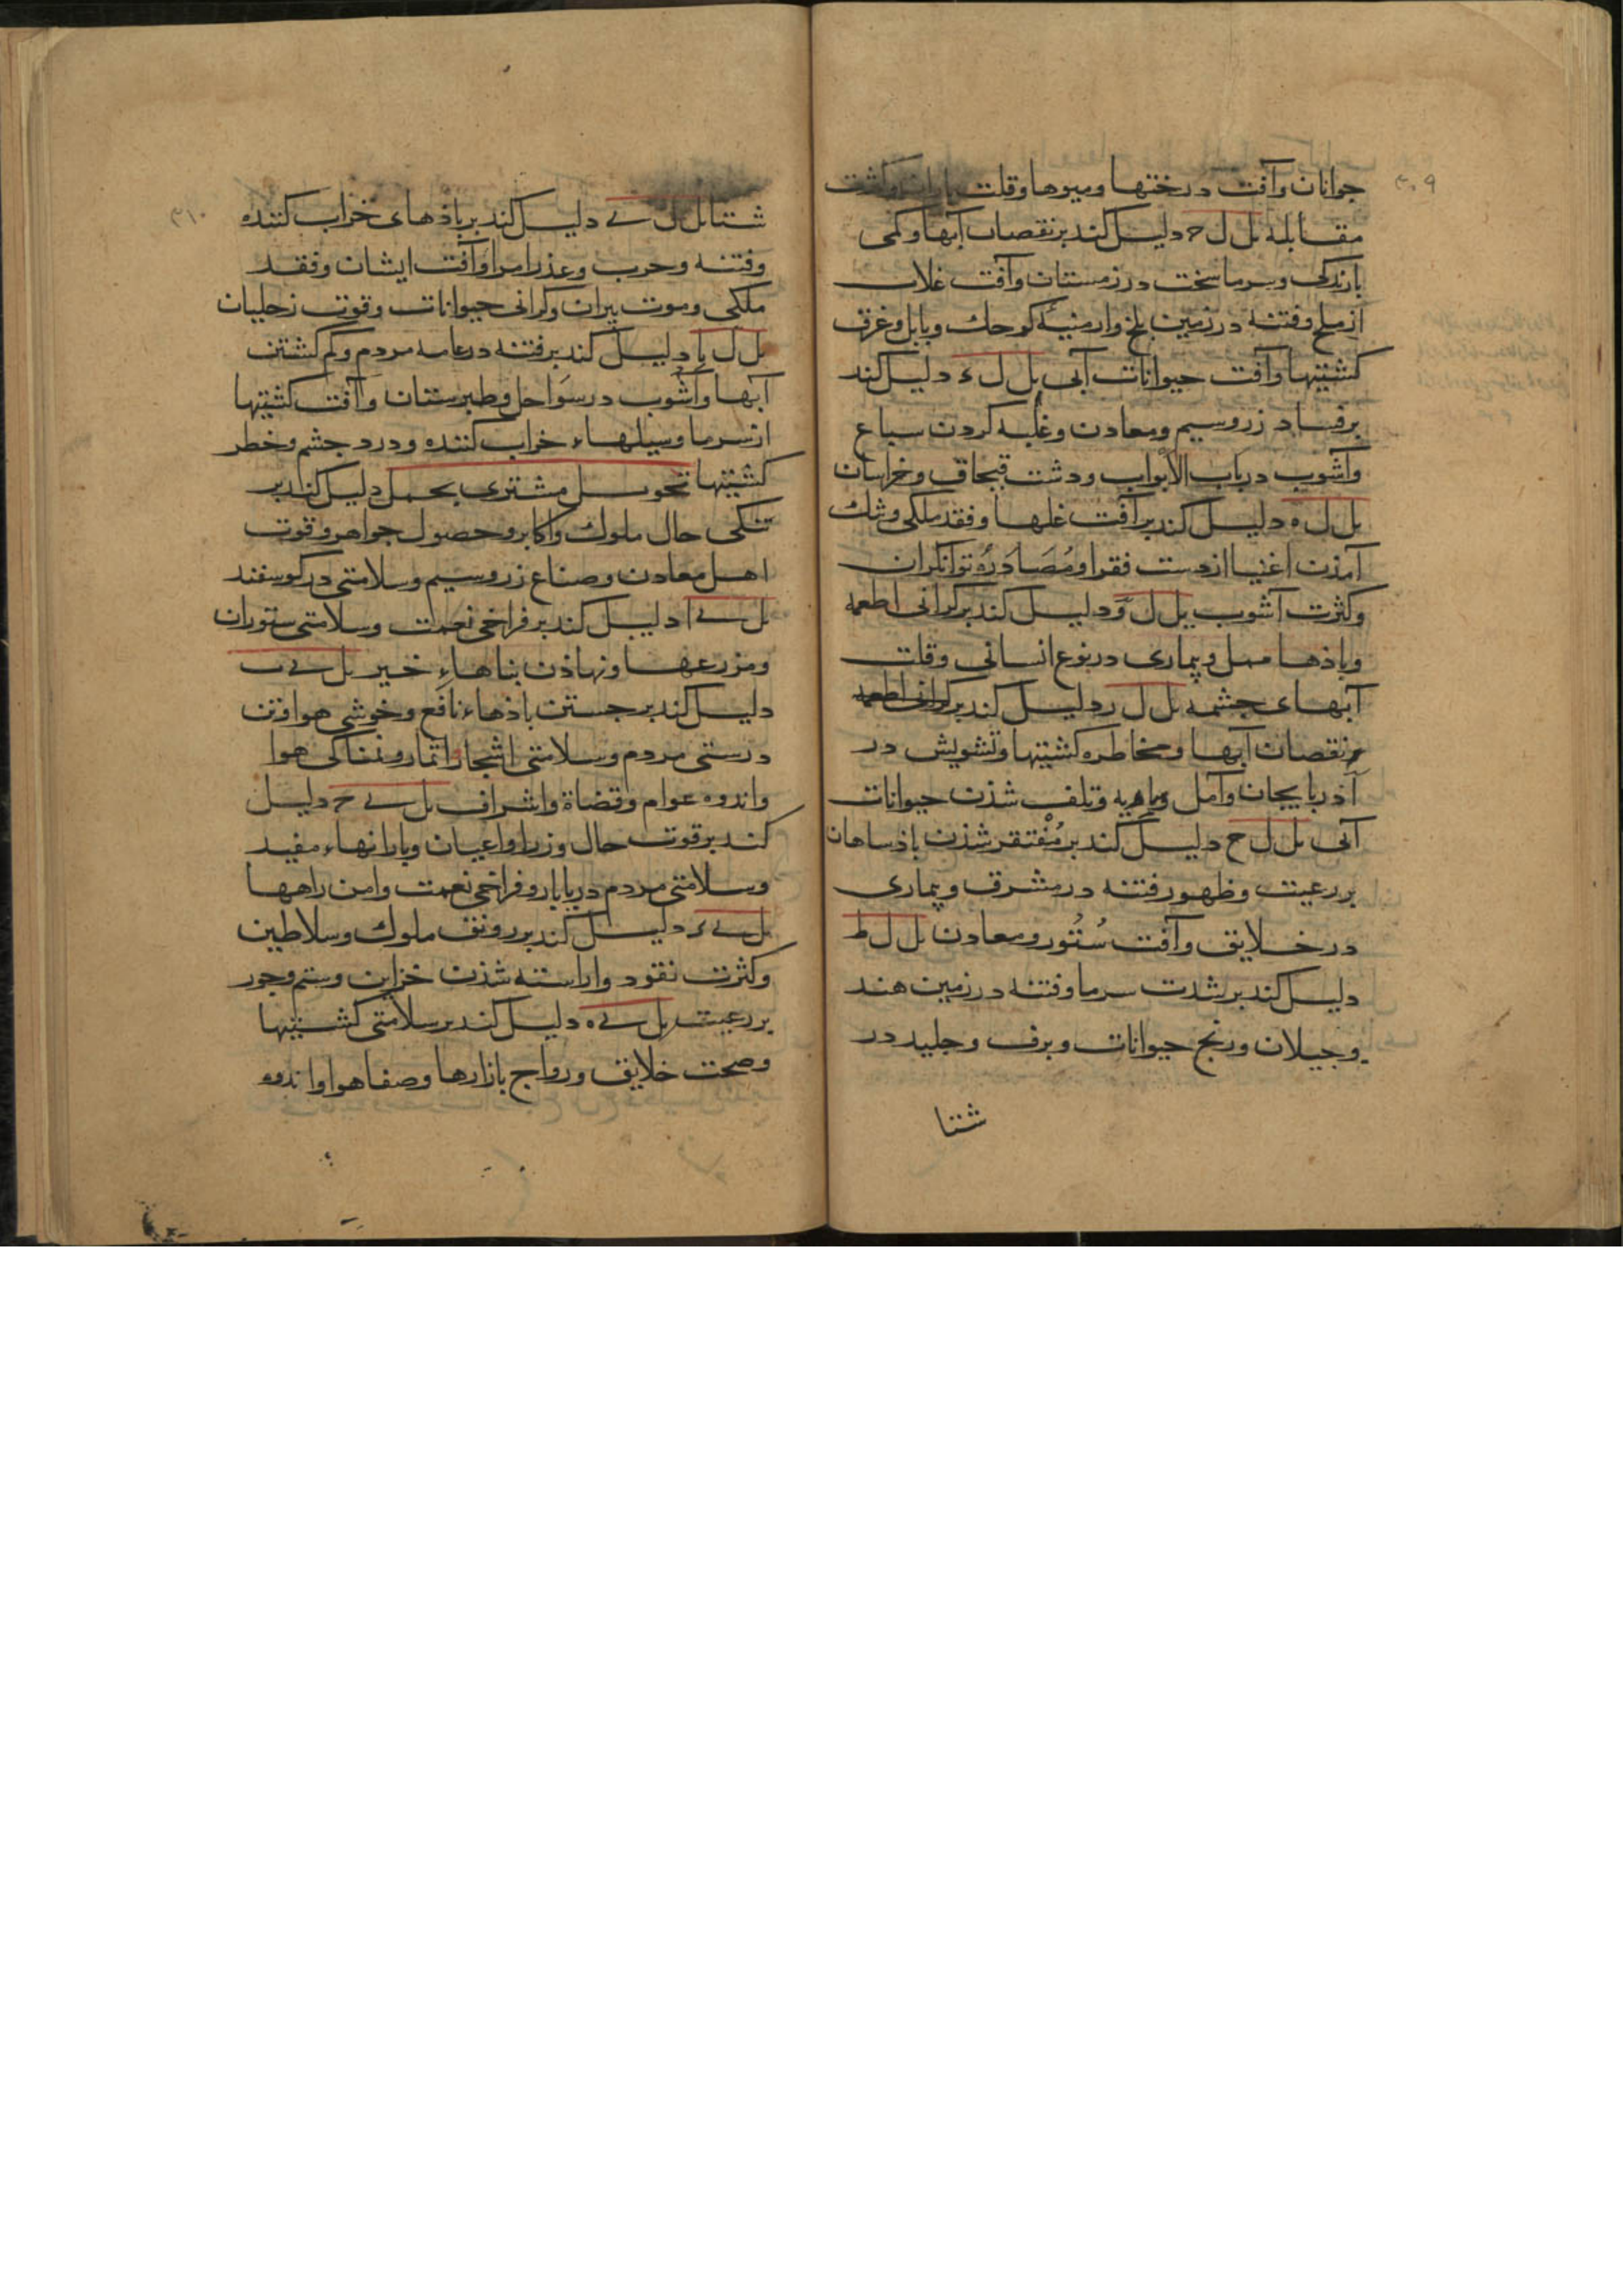 ۳۰۹
جوانان وآفت درختها ومیوها وقلت باران وکشت
مقابله بل ل ح دلیل کند بر نقصان آبها وکمی
بارندکی وسرما سخت در زمستان وآفت غلات
از ملخ وفتنه در زمین بلخ وارمنیه کوچک وبابل وغرق
کشتیها وآفت حیوانات آبی بل ل ء دلیل کند
بر فساد زر وسیم ومعادن وغلبه کردن سباع
وآشوب در باب الابواب ودشت قبجاق وخراسان
بل ل ه دلیل کند بر آفت غلها وفقد ملکی وشک
آمذن اغنیا از دست فقرا ومُصَادَرَه توانکران
وکثرت آشوب بل ل و دلیل کند بر کرانی اطعمه
وباذها مهل وبیماری در نوع انسانی وقلت
آبهای جشمه بل ل ر دلیل کند بر کرانی اطعمه
نقصان آبها ومخاطره کشتیها وتشویش در
آذربایجان وآمل وتلف شذن حیوانات
آبی بل ل ح دلیل کند بر مُفتقر شذن باذساهان
بر رعیت وظهور فتنه در مشرق وبیماری
در خلایق وآفت سُتُور ومعادن بل ل ط
دلیل کند بر شدت سرما وفتنه در زمین هند
وجیلان ورنج حیوانات وبرف وجلید در
شتا
۳۱۰
شتا بل ل ے دلیل کند بر باذهای خراب کننده
وفتنه وحرب وعذر امرا وآفت ایشان وفقد
ملکی وموت بیران وکرانی حیوانات وقوت زحلیان
بل ل یا دلیل کند بر فتنه در عامه مردم وکم کشتن
آبها وآشوب در سواحل وطبرستان وآفت کشتیها
از سرما وسیلهاء خراب کننده ودرد جشم وخطر
کشتیها تحویل مشتری بحمل دلیل کند بر
تنکی حال ملوک واکابر وحصول جواهر وقوت
اهل معادن وصناع زر وسیم وسلامتی در کوسفند
بل ے ا دلیل کند بر فراخی نعمت وسلامتی ستوران
ومزرعها ونهاذن بناهاء خیر بل ے ب
دلیل کند بر جستن باذهاء نافع وخوشی هوا وتن
درستی مردم وسلامتی اشجار اثمار ونمناکی هوا
واندوه عوام وقضاة واشراف بل ے ح دلیل
کند بر قوت حال وزرا واعیان وبارانهاء مفید
وسلامتی مردم دریابار وفراخی نعمت وامن راهها
بل ے ء دلیل کند بر رونق ملوک وسلاطین
وکثرت نقود واراسته شذن خزاین وستم وجور
بر رعیت بل ے ه دلیل کند بر سلامتی کشتیها
وصحت خلایق ورواج بازارها وصفا هوا واندوه